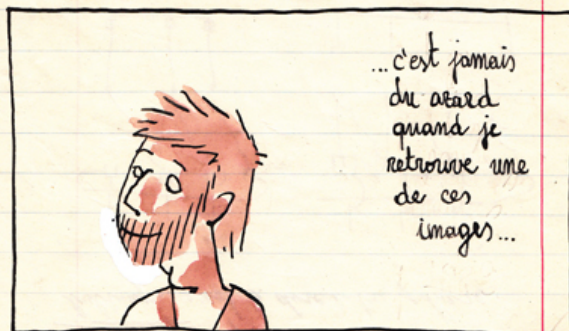 ...c'est jamais
du azard
quand je
retrouve une
de ces
images...